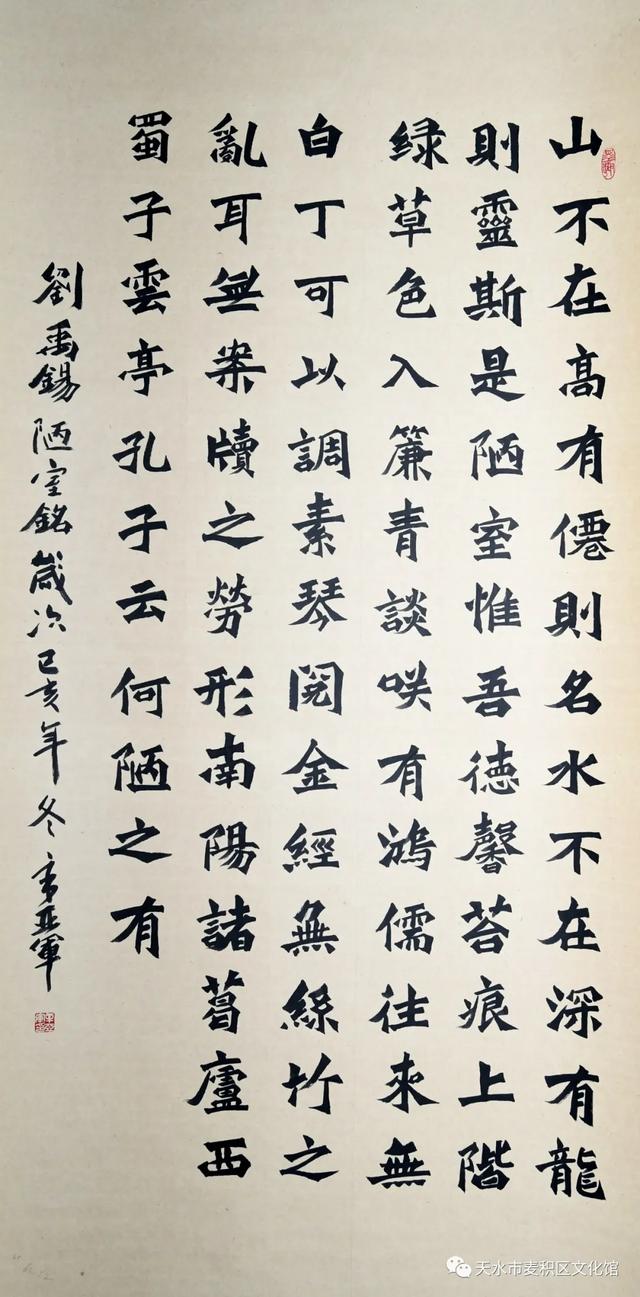 山不在高有僊則名水不在深有龍
則靈斯是陋室惟吾德馨苔痕上階
緑草色入簾青談咲有鴻儒往來無
白丁可以調素琴閱金經無絲竹之
亂耳無案牘之勞形南陽諸葛廬西
蜀子雲亭孔子云何陋之有
劉禹錫陋室銘歲次己亥年冬亞軍
天水市麦积区文化馆